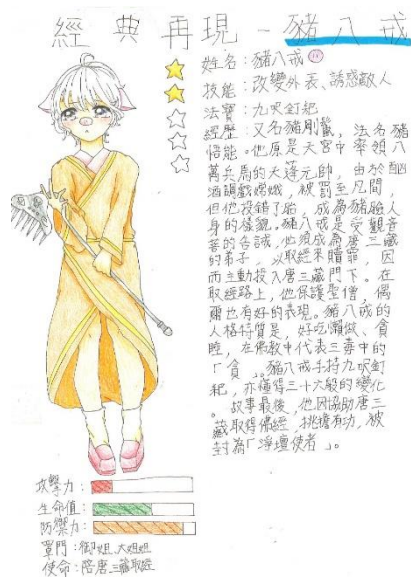 經典再現-豬八戒
姓名:豬八戒
技能:改變外表、誘惑敵人
法寶:九呎釘耙
經歷:又名豬剛鬣,法名豬
悟能。他原是天宮中率領八
萬兵馬的天蓬元帥,由於酗
酒調戲嫦娥,被罰至凡間,
但他投錯了胎,成為豬臉人
身的樣貌。豬八戒是受觀音
菩的告誡,他須成為唐三藏
的弟子,以取經來贖罪,因
而主動投入唐三藏門下。在
取經路上,他保護聖僧,偶
爾也有好的表現。豬八戒的
人格特質是,好吃懶做、貪
睡,在佛教中代表三毒中的
「貪」。豬八戒手持九呎釘
耙,亦懂得三十六般的變化
。故事最後,他因協助唐三
藏取得佛經,挑擔有功,被
封為「淨壇使者」。
攻擊力:
生命值:
防禦力:
罩門:御姐、大姐姐
使命:陪唐三藏取經